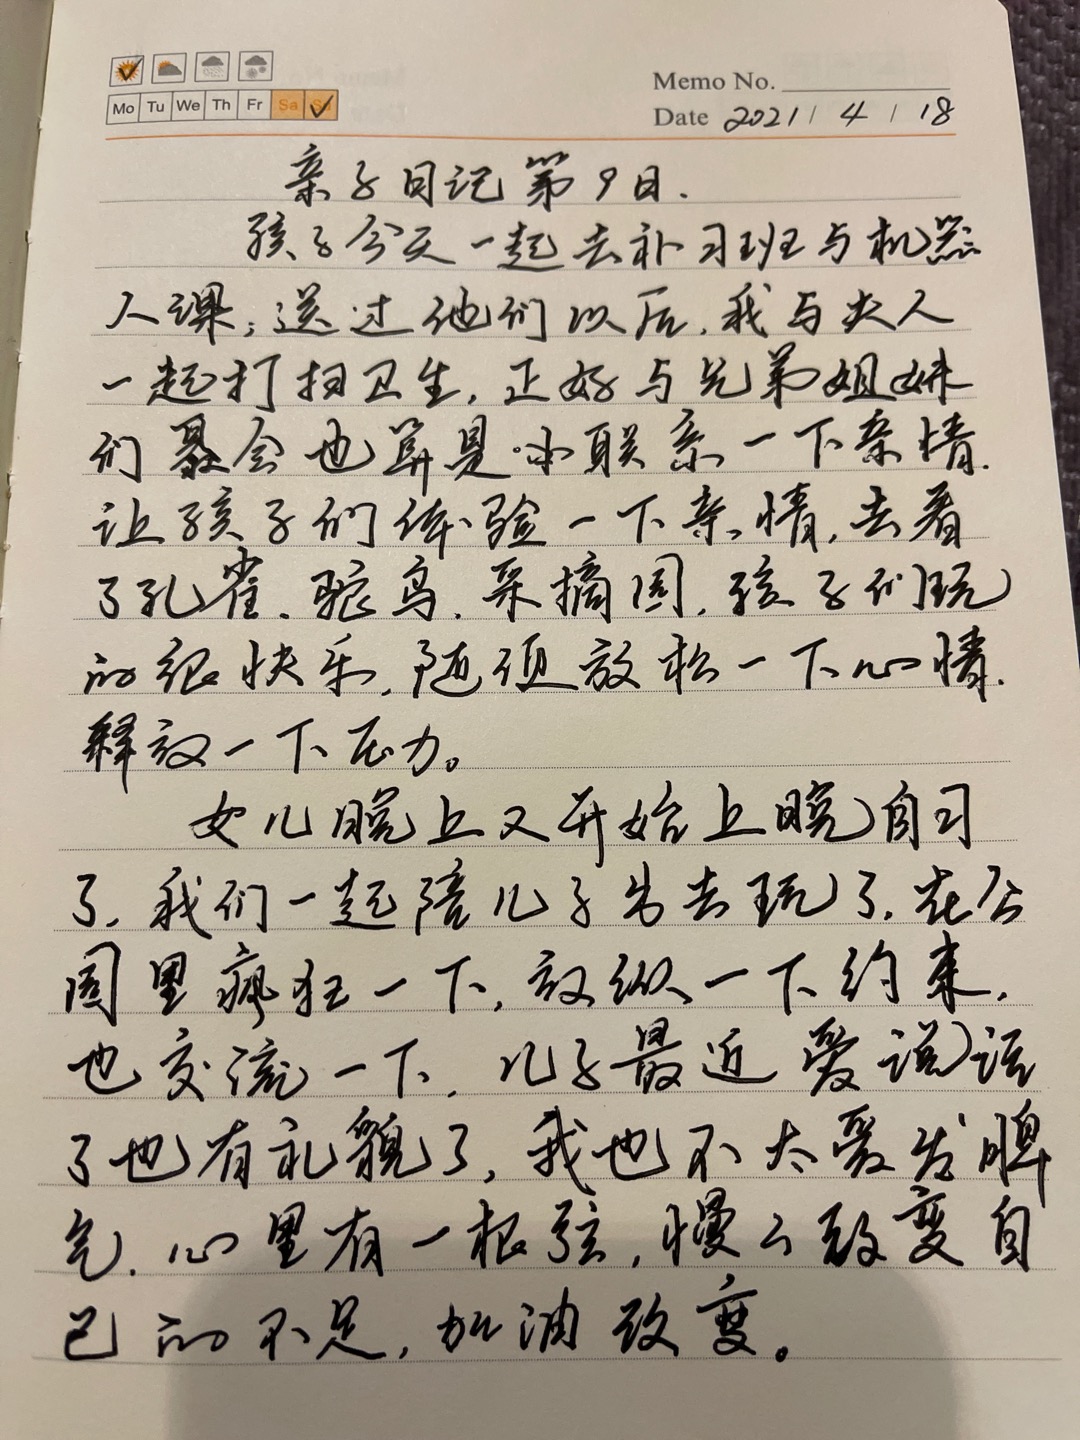 Memo No.
Mo Tu We Th Fr Sa Su
Date 2021 / 4 / 18
亲子日记第9日.
孩子今天一起去补习班与机器
人课,送过他们以后,我与夫人
一起打扫卫生,正好与兄弟姐妹
们聚会也算是小联系一下亲情.
让孩子们体验一下亲情,去看
了孔雀、鸵鸟、采摘园,孩子们玩
的很快乐,随便放松一下心情.
释放一下压力。
女儿晚上又开始上晚自习
了,我们一起陪儿子出去玩了,在公
园里疯狂一下,放纵一下约束,
也交流一下,儿子最近爱说话
了也有礼貌了,我也不太爱发脾
气,心里有一根弦,慢々改变自
己的不足,加油改变。